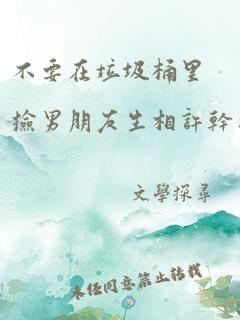 不要在垃圾桶里
撿男朋友生相許幹
文學探尋
未经同意禁止转载